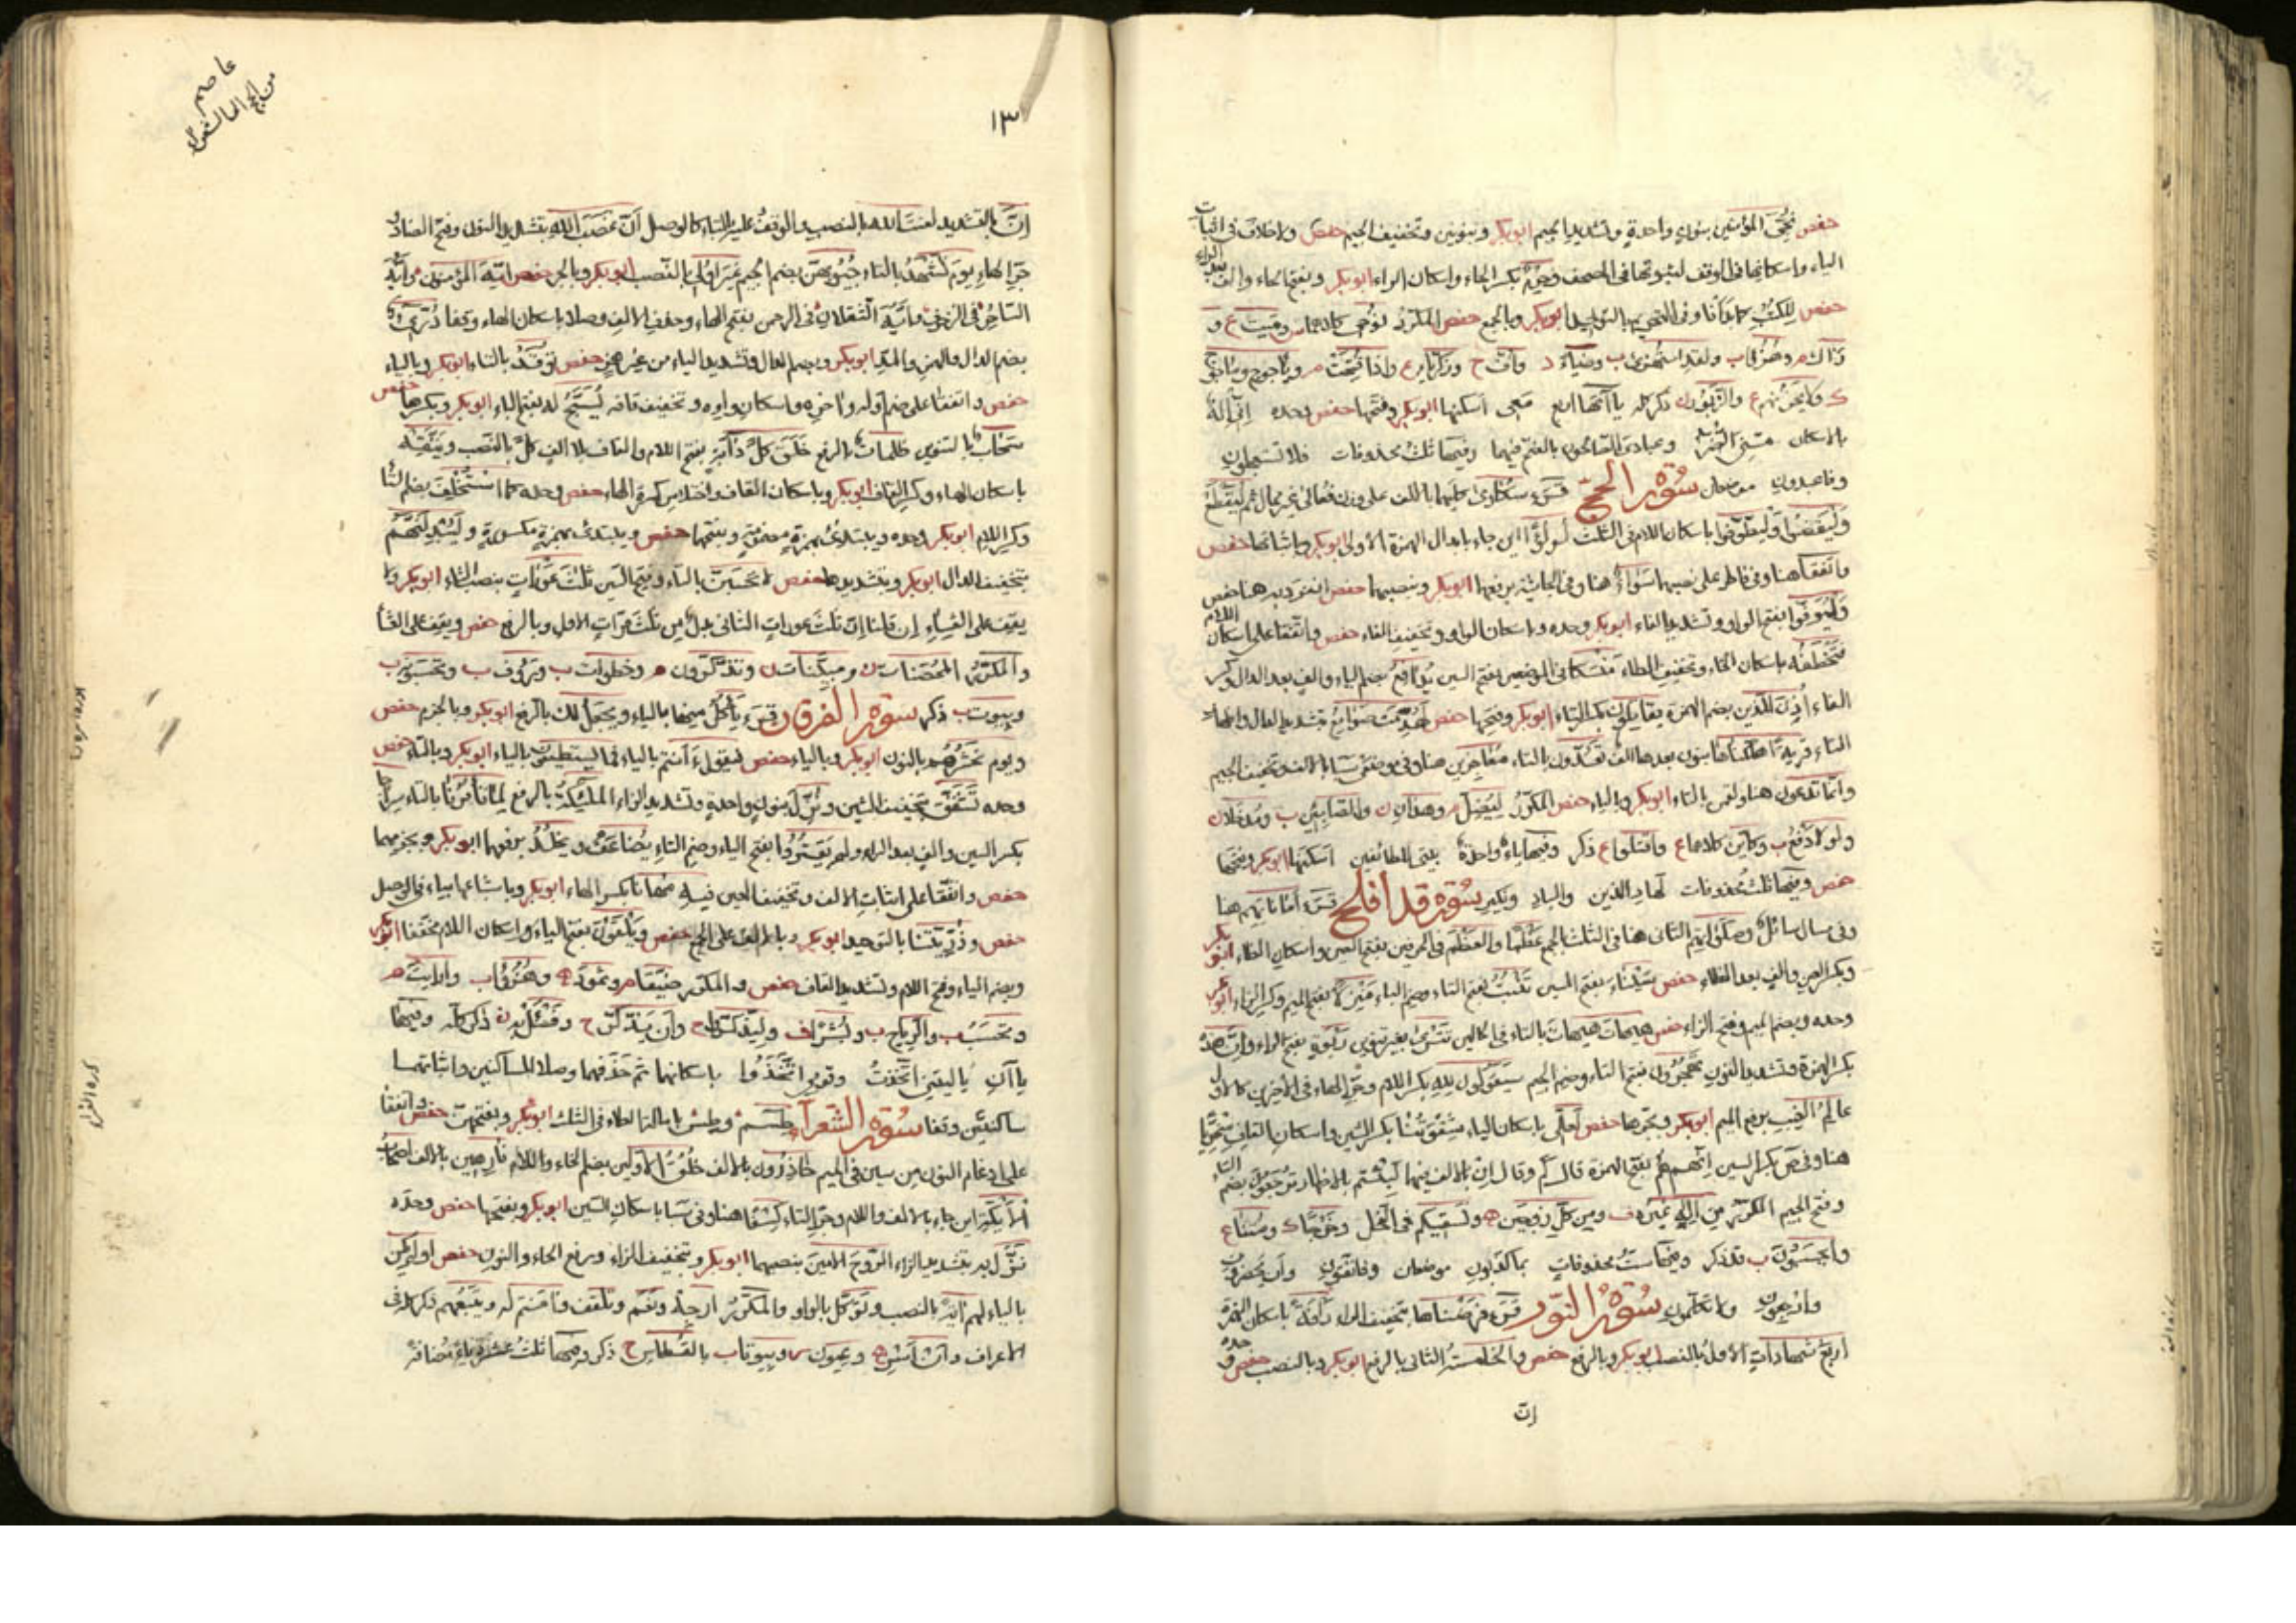 حفص نُجّي المؤمنين بنون واحدة وتشديد الجيم ابوبكر وبنونين وتخفيف الجيم حفص ولاخلاف في اثبات
الياء واسكانها في الوقف لثبوتها في المصحف وحِرْم بكسر الحاء واسكان الراء ابوبكر وبفتح الحاء والف بعد الراء
حفص للكتب كما بدأنا وفى التحريم بالتوحيد ابوبكر وبالجمع حفص المكرر نوحى كلاهما س ومتّ ع و
رآك م وهزؤا ب ولقد استهزئ ب وضياء د وأفّ ح وزكريا ع واذا فتحت م وياجوج وماجوج
ك ولا يحزنهم ع والزبور ن ذكر كله ياآتها اربع معى اسكنها ابوبكر وفتحها حفص وحده إنّى إله
بالاسكان مسّنى الضر وعبادى الصالحون بالفتح فيهما وفيها ثلث محذوفات فلا تستعجلون
وفاعبدون موضعان سورة الحج قرء سكارى كليهما بالالف على وزن فعالى غير ممال ثم ليقطع
وليقضوا وليطوفوا باسكان اللام فى الثلث لؤلؤًا اين جاء بابدال الهمزة الاولى ابوبكر وباثباتها حفص
واتفقا هنا وفى فاطر على نصبهما سواءٌ هنا وفى الجاثية برفعها ابوبكر وبنصبهما حفص انفرد به هنا حفص
وليوفّوا بفتح الواو وتشديد الفاء ابوبكر وحده وباسكان الواو وتخفيف الفاء حفص واتفقا على اسكان اللام
فتخطفه باسكان الخاء وتخفيف الطاء منسكا فى الموضعين بفتح السين يُدافع بضم الياء والف بعد الدال وكسر
الفاء أُذن للذين بضم الهمزة يقاتلون بكسر التاء ابوبكر وفتحها حفص لهدّمت صوامع بتشديد الدال واظهار
التاء قرية اهلكناها بنون بعدها الف تعدّون بالتاء معاجزين هنا وفى موضعى سبا بالالف وتخفيف الجيم
وانّما تدعون هنا ولقمن بالتاء ابوبكر وبالياء حفص المكرر ليضلّ م وهذان ن والصابئين ب ومدخلا ن
ولولا دفع ب وكأين كلاهما ع وقتلوا ع ذكر وفيها ياء واحدة بيتى للطائفين اسكنها ابوبكر وفتحها
حفص وفيها ثلث محذوفات لهاد الذين والباد ونكير سورة قد افلح قرء أماناتهم هنا
وفى سال سائل وصلواتهم الثانى هنا فى الثلث بالجمع عظما والعظم فى الحرفين بفتح العين واسكان الظاء ابوبكر
وبكسر العين والف بعد الظاء حفص سيناء بفتح السين تنبت بفتح التاء وضم الباء منزلا بفتح الميم وكسر الزاء ابوبكر
وحده وبضم الميم وفتح الزاء حفص هيهات هيهات بالتاء فى الحالين تترى بغير تنوين ربوة بفتح الراء وإنّ هذه
بكسر الهمزة وتشديد النون تهجرون بفتح التاء وضم الجيم سيقولون لله بكسر اللام وجر الهاء فى الاخيرين كالاول
عالمُ الغيب برفع الميم ابوبكر وبجرها حفص لعلّى باسكان الياء شقوتنا بكسر الشين واسكان القاف سخريا
هنا وفى ص بكسر السين انّهم هم بفتح الهمزة قال كم وقال ان بالالف فيهما لبثتم بالاظهار ترجعون بضم التاء
وفتح الجيم المكرر من اله غيره ف ومن كل زوجين ه ونسقيكم فى النحل وخرجا ك ومتنا ع
وايحسبون ب قد ذكر وفيها ستّ محذوفات بما كذبون موضعان وفاتقون وأن يحضرون
وارجعون ولا تكلمون سورة النور قرء فرضناها بتخفيف الراء رأفة باسكان الهمزة
اربع شهادات الاول بالنصب ابوبكر وبالرفع حفص والخامسة الثانى بالرفع ابوبكر وبالنصب حفص وحده
انّ
عاصم
من الحج الى الشعراء
١٣
انّ بالتشديد لعنت الله بالنصب والوقف عليه بالتاء كالوصل أنّ غضب الله بتشديد النون وفتح الضاد و
جر الهاء يوم تشهد بالتاء جيوبهن بضم الجيم غير اولى بالنصب ابوبكر وبالجر حفص ايّه المؤمنون وأيّه
الساحر فى الزخرف وأيّه الثقلان فى الرحمن بفتح الهاء وحذف الالف وصلا باسكان الهاء وقفا درّىّ
بضم الدال والهمز والمد ابوبكر وبضم الدال وتشديد الياء من غير همز حفص توقد بالتاء ابوبكر وبالياء
حفص واتفقا على ضم اوله واخره واسكان واوه وتخفيف قافه يسبّح له بفتح الباء ابوبكر وبكسرها حفص
سحاب بالتنوين ظلمات بالرفع خلق كل دابة بفتح اللام والقاف بلا الف كلّ بالنصب ويتّقه
باسكان الهاء وكسر القاف ابوبكر وباسكان القاف واختلاس كسرة الهاء حفص وحده كما استخلف بضم التاء
وكسر اللام ابوبكر وحده ويبتدئ بهمزة مضمومة وبفتحها حفص ويبتدئ بهمزة مكسورة وليبدلنهم
بتخفيف الدال ابوبكر وبتشديدها حفص لا تحسبن بالتاء وفتح السين ثلث عورات بنصب الثاء ابوبكر ولا
يقف على العشاء ان قلنا انّ ثلث عورات الثانى بدل من ثلث مرات الاول وبالرفع حفص ويقف على العشا
والمكرر المحصنات ن ومبيّنات ن وتذكّرون م وخطوات ب ورؤف ب وتحسبونه ب
وبيوت ب ذكر سورة الفرقان قرء يأكل منها بالياء ويجعل لك بالرفع ابوبكر وبالجزم حفص
ويوم نحشرهم بالنون ابوبكر وبالياء حفص فيقول ءأنتم بالياء فما يستطيعون بالياء ابوبكر وبالتاء حفص
وحده تشقق بتخفيف الشين ونزّل بنون واحدة وتشديد الزاء الملئكة بالرفع لما تأمرنا بالتاء سراجا
بكسر السين والف بعد الراء ولم يقتروا بفتح الياء وضم التاء يضاعف ويخلد برفعهما ابوبكر وبجزمهما
حفص واتفقا على اثبات الالف وتخفيف العين فيه مهانا بكسر الهاء ابوبكر وباشباعها بياء فى الوصل
حفص وذريتنا بالتوحيد ابوبكر وبالالف على الجمع حفص ويلقون بفتح الياء واسكان اللام مخففا ابوبكر
وبضم الياء وفتح اللام وتشديد القاف حفص والمكرر ضيقا م وثمود ه وهزؤا ب وارايت م
وتحسب ب والرياح ب وبشرا ف وليذكروا ح وأن يذكر ح وفسئل به ن ذكر كله وفيها
ياآن ياليتنى اتخذت وقومى اتخذوا باسكانهما ثم حذفهما وصلا للساكنين واثباتهما
ساكنتين وقفا سورة الشعراء طسم وطس بامالة الطاء فى الثلث ابوبكر وبفتحهن حفص واتفقا
على ادغام النون من سين فى الميم حاذرون بالالف خلق الاولين بضم الخاء واللام فارهين بالالف اصحاب
الأيكة اين جاء بالالف واللام وجر التاء كسفا هنا وفى سبا باسكان السين ابوبكر وبفتحها حفص وحده
نزّل به بتشديد الزاء الروح الامين بنصبهما ابوبكر وبتخفيف الزاء ورفع الحاء والنون حفص اولم يكن
بالياء لهم آية بالنصب وتوكل بالواو والمكرر ارجه ونعم وتلقف وءامنتم له ويتبعهم ذكر فى
الاعراف وأن اسر ه وعيون ب وبيوتا ب بالقسطاس ح ذكر وفيها ثلث عشرة ياء مضافة